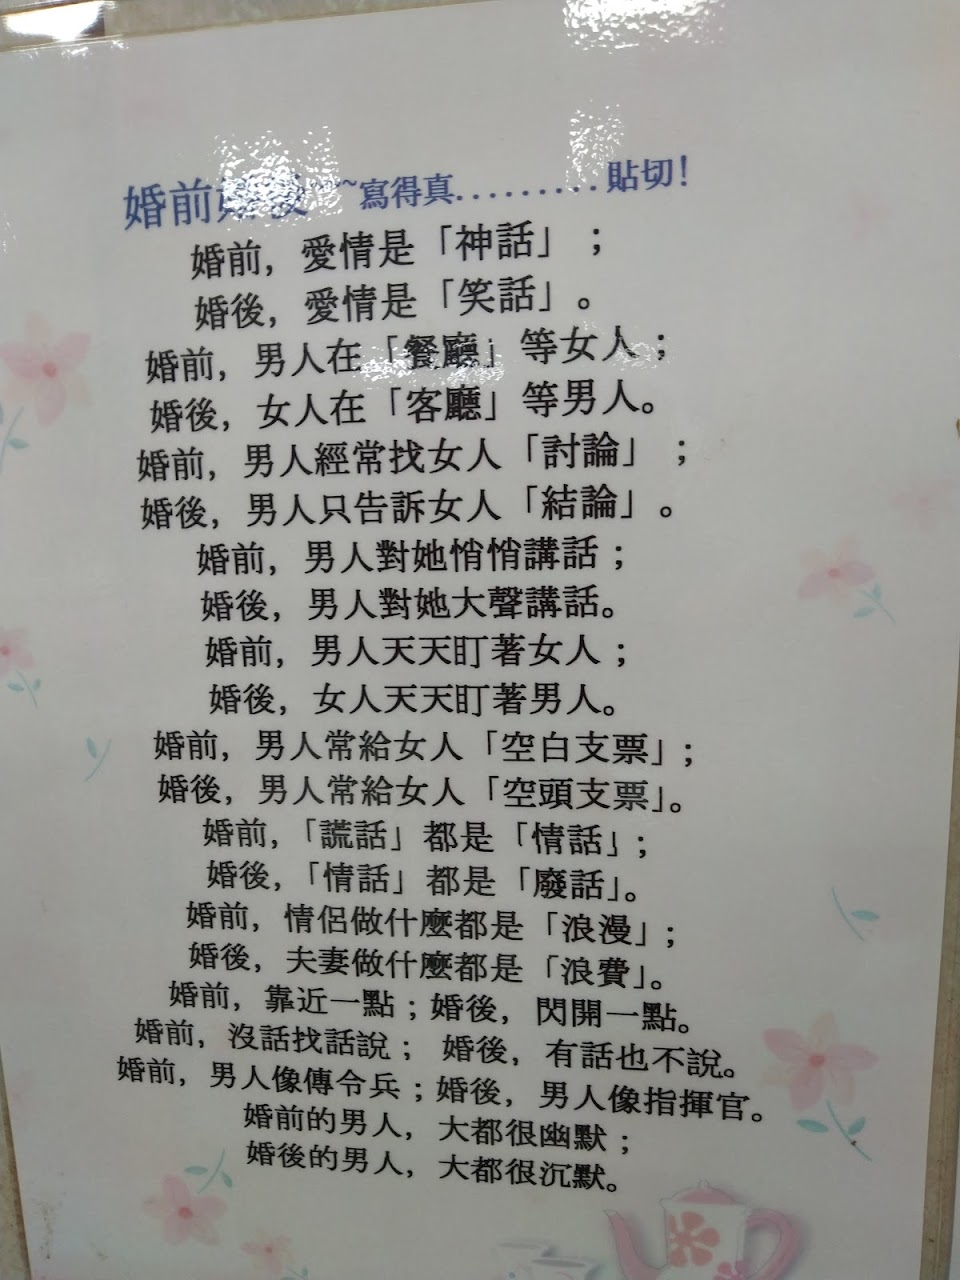 婚前婚後~~寫得真.........貼切!
婚前，愛情是「神話」；
婚後，愛情是「笑話」。
婚前，男人在「餐廳」等女人；
婚後，女人在「客廳」等男人。
婚前，男人經常找女人「討論」；
婚後，男人只告訴女人「結論」。
婚前，男人對她悄悄講話；
婚後，男人對她大聲講話。
婚前，男人天天盯著女人；
婚後，女人天天盯著男人。
婚前，男人常給女人「空白支票」；
婚後，男人常給女人「空頭支票」。
婚前，「謊話」都是「情話」；
婚後，「情話」都是「廢話」。
婚前，情侶做什麼都是「浪漫」；
婚後，夫妻做什麼都是「浪費」。
婚前，靠近一點；婚後，閃開一點。
婚前，沒話找話說； 婚後，有話也不說。
婚前，男人像傳令兵；婚後，男人像指揮官。
婚前的男人，大都很幽默；
婚後的男人，大都很沉默。